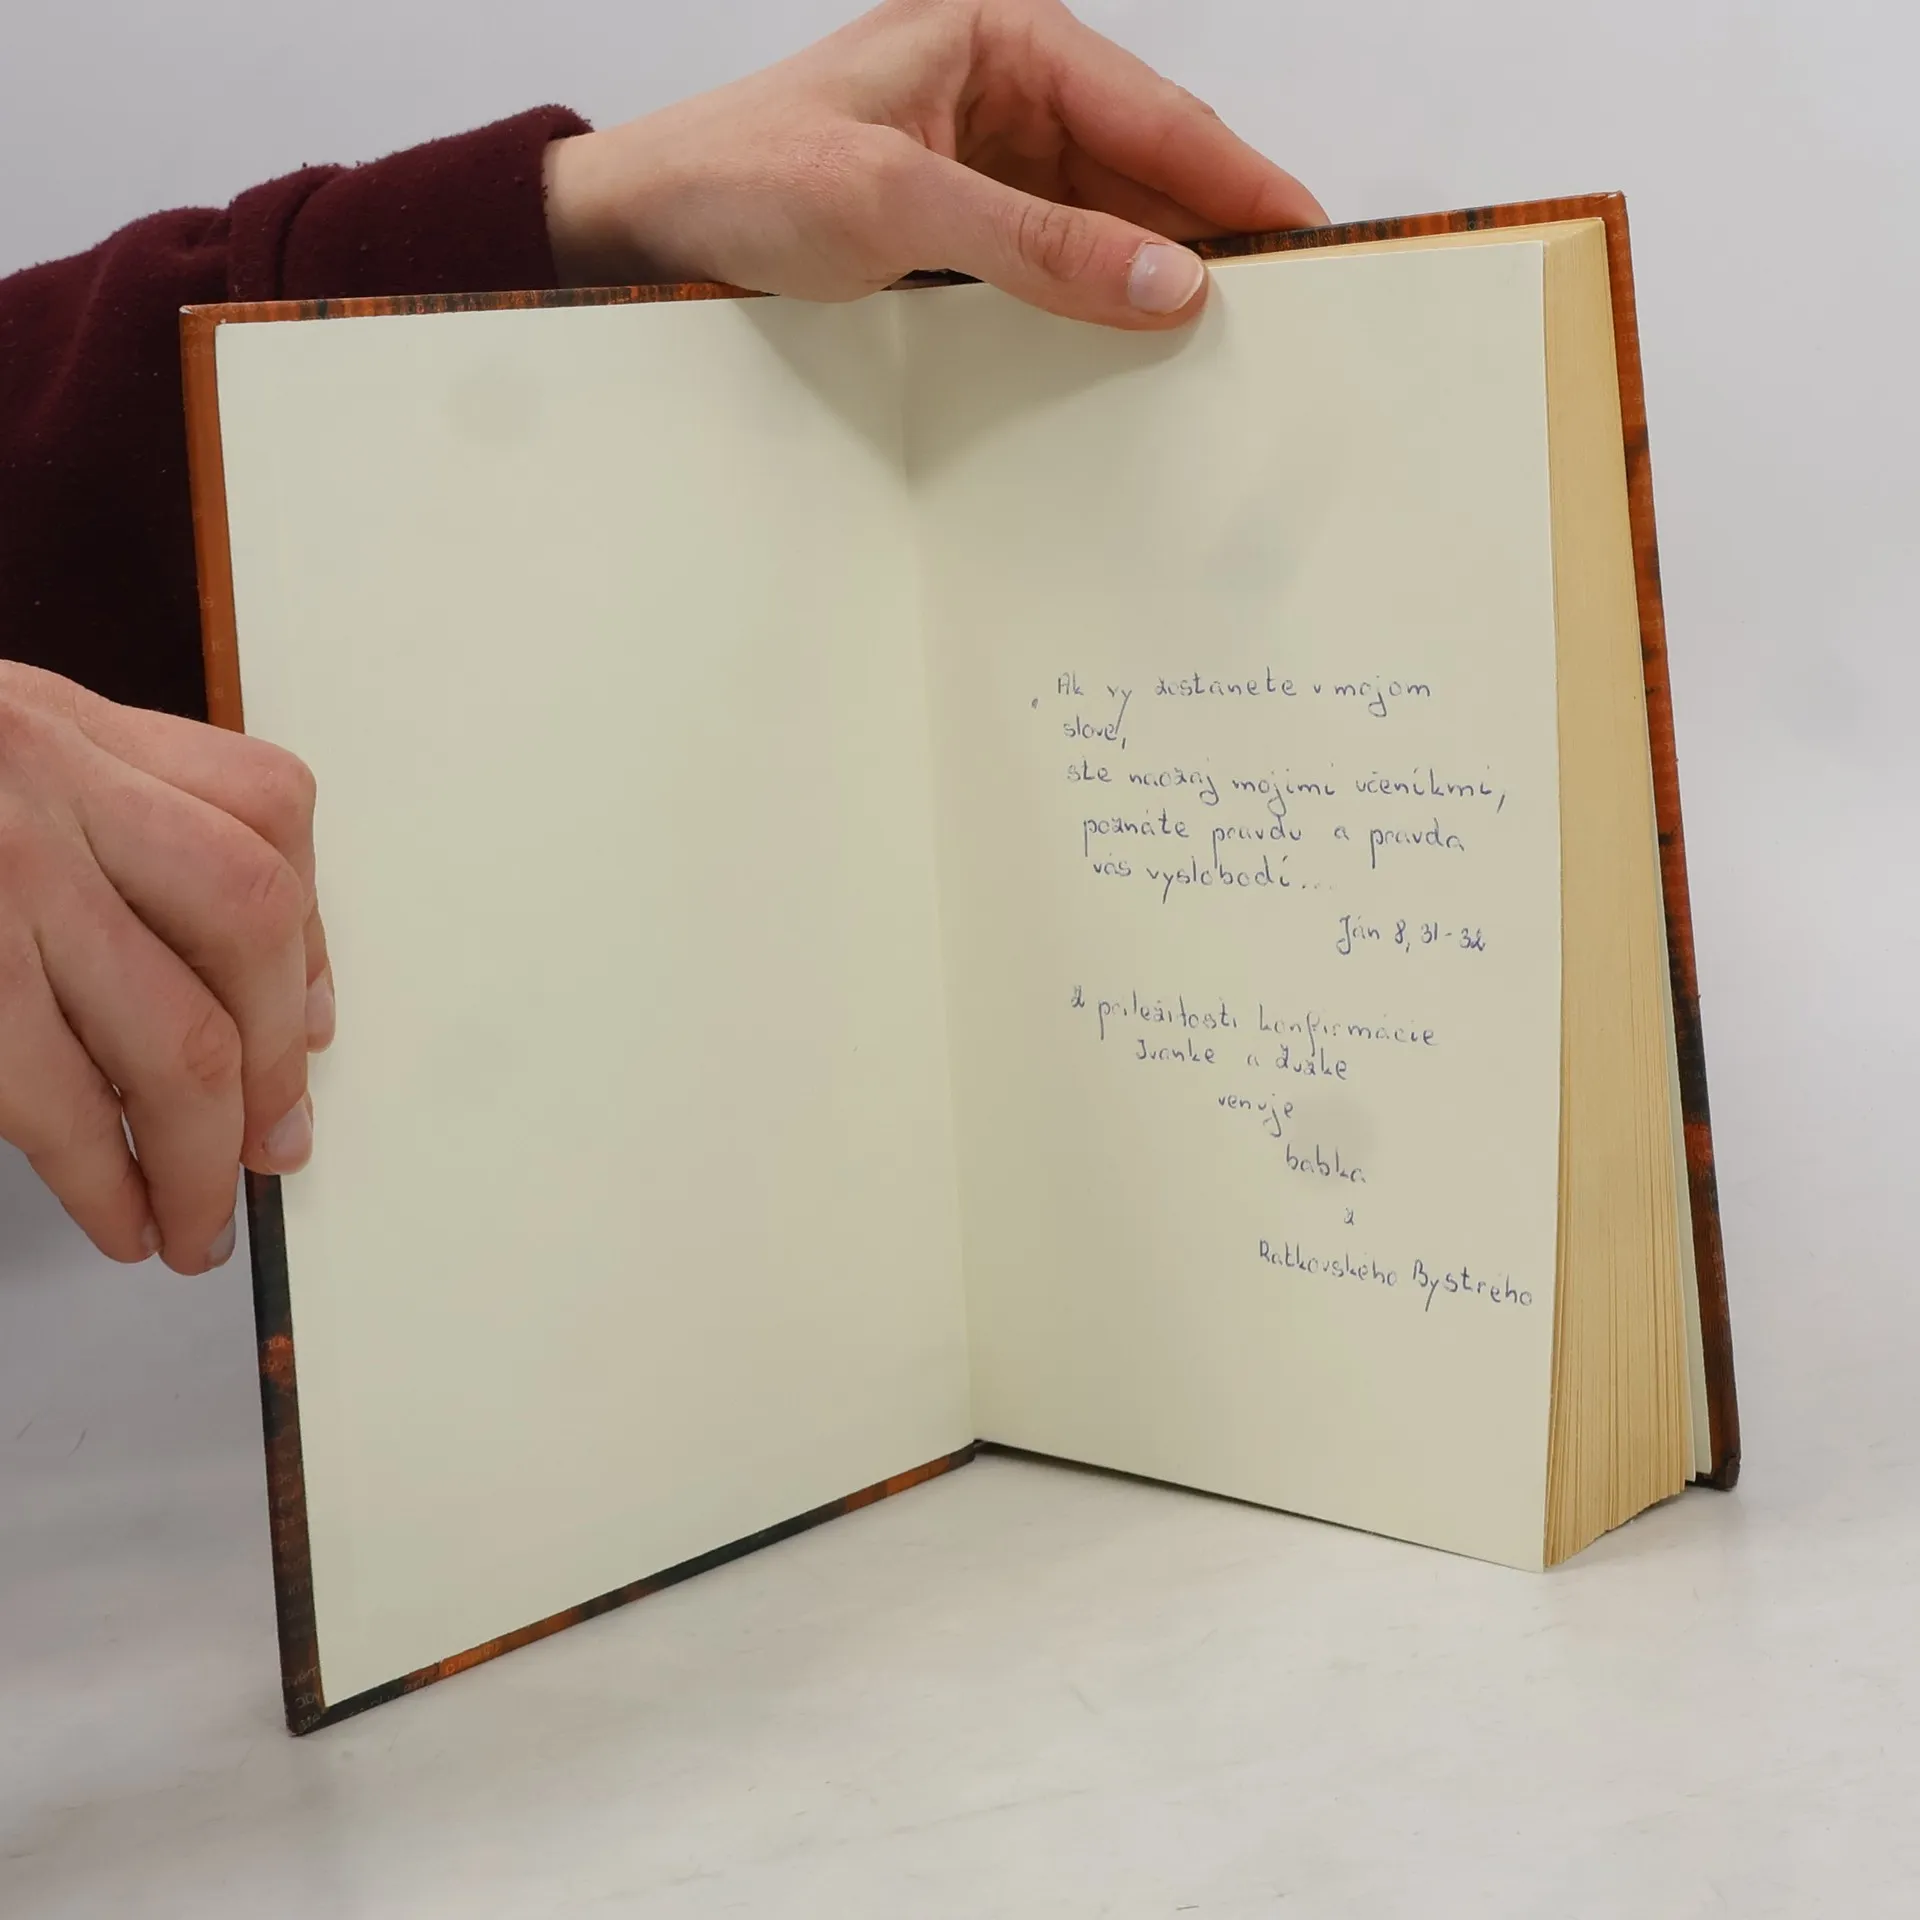 „Ak vy zostanete v mojom
slove,
ste naozaj mojimi učeníkmi,
poznáte pravdu a pravda
vás vyslobodí...
Ján 8, 31-32
Z príležitosti konfirmácie
Ivanke a Zuzke
venuje
babka
z
Ratkovského Bystrého